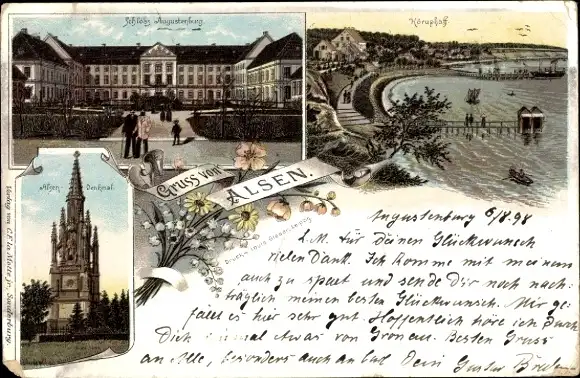 Schloss Augustenburg.
Höruphaff.
Alsen-Denkmal.
Gruss von
ALSEN.
Verlag von C.F. la Motte jr., Sonderburg.
Augustenburg 6/8.98
L.M. Für Deinen Glückwunsch
vielen Dank. Ich komme mit meinem
auch zu spaet und sende Dir noch nach-
träglich meinen besten Glückwunsch. Mir ge-
fällt es hier sehr gut. Hoffentlich höre ich durch
Dich einmal etwas von Gronau. Besten Gruss
an Alle, besonders auch an Dein Gustav